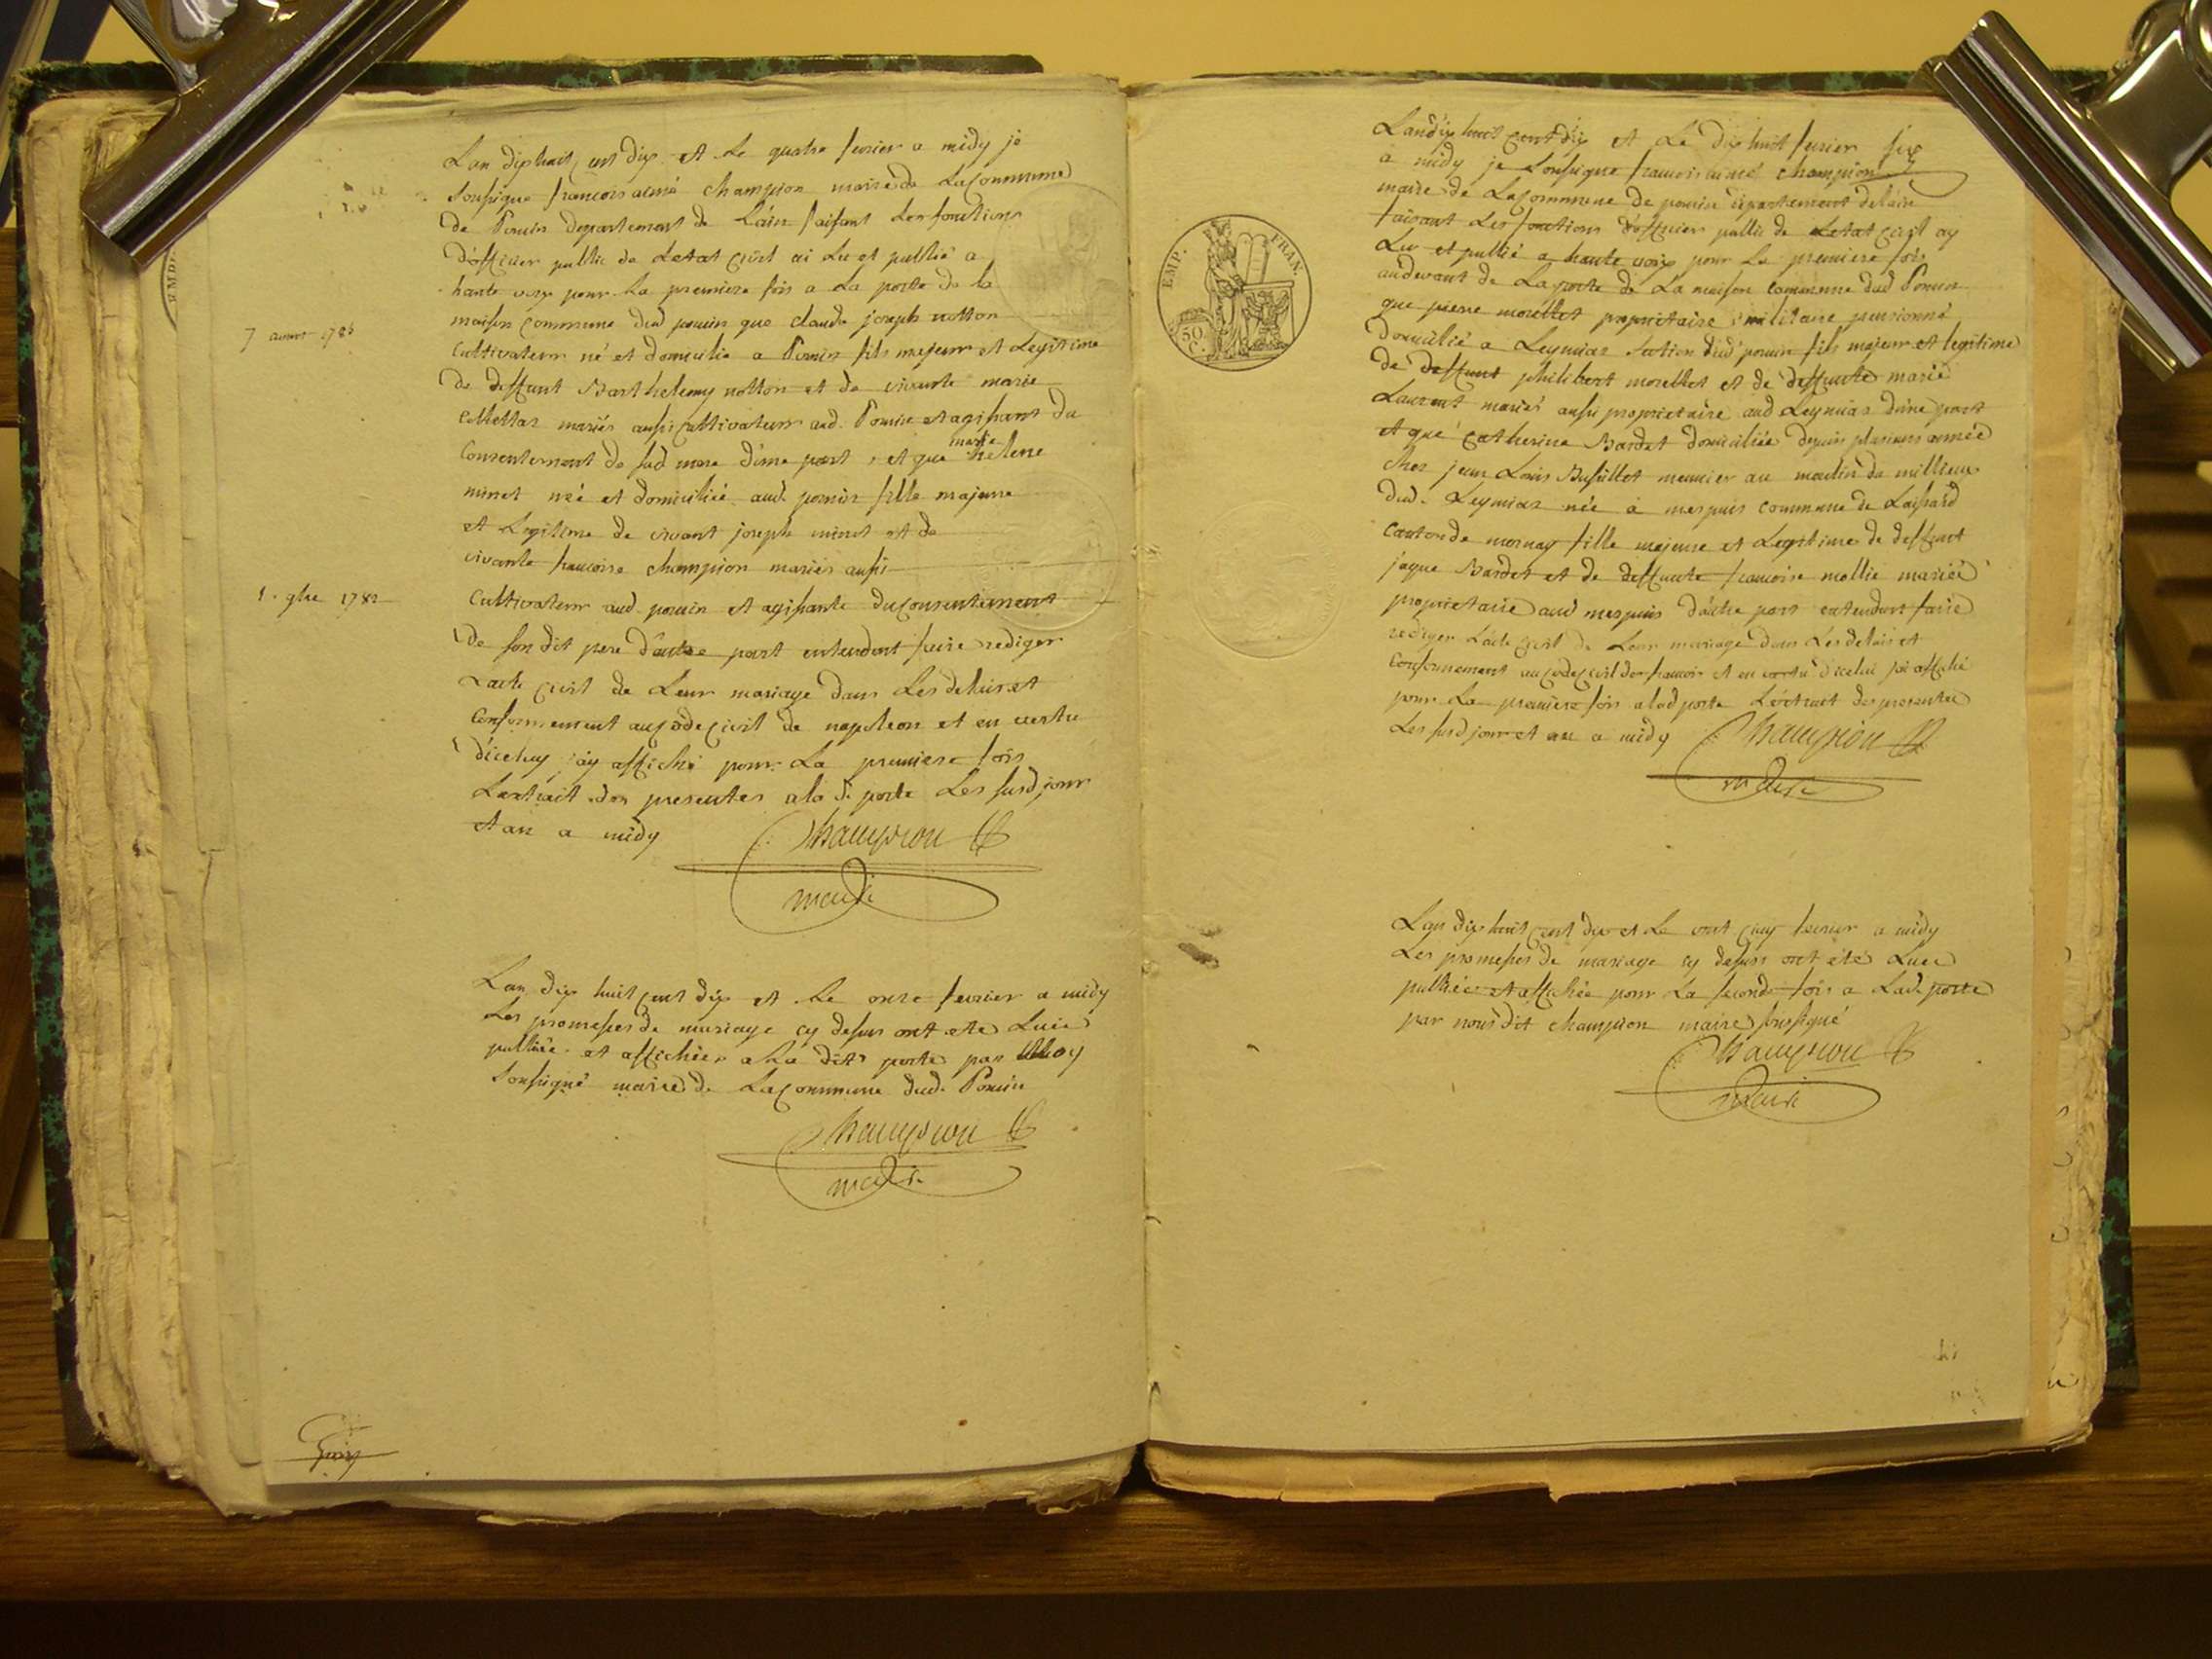 Lan dix huit cent dix et le quatre fevrier a midy je
soussigne francois aimé champion maire de La Commune
de Poncin departement de Lain faisant Les fonctions
d'officier public de Letat civil ai Lu et publié a
haute voix pour La premiere fois a La porte de la
maison commune dud poncin que claude joseph notton
7 aoust
Cultivateur né et domicilié a Poncin fils majeur et Legitime
de deffunt Barthelemy notton et de vivante marie
mariés aussi cultivateurs aud. Poncin et agissant du
Consentement de sad mere d'une part, et que marie helene
minet née et domiciliée aud. poncin fille majeure
et Legitime de vivant joseph minet et de
vivante francoise champion mariés aussi
1. 9bre 1782
Cultivateurs aud. poncin et agissante du consentement
de son dit pere d'autre part entendent faire rediger
Lacte civil de Leur mariage dans Les delais et
Conformement au code civil de napoleon et en vertu
d'iceluy ay affiché pour La premiere fois
Lextrait des presentes a la d. porte Les susd jour
et an a midy
Champion
maire
Lan dix huit cent dix et Le onze fevrier a midy
Les promesses de mariage cy dessus ont ete Lues
publiée et affichées a La dite porte par moy
soussigné maire de La Commune dud. Poncin
Champion
maire
EMP. FRAN.
50 C.
Lan dix huit cent dix et Le dix huit fevrier
a midy je soussigne francois aimé champion
maire de La Commune de poncin departement de Lain
faisant Les fonctions d'officier public de Letat civil ay
Lu et publié a haute voix pour La premiere fois
au devant de La porte de La maison commune dud Poncin
que pierre morellet proprietaire militaire pensionné
domicilié a Leymiaz section dud poncin fils majeur et legitime
de deffunt philibert morellet et de deffunte marie
Laurent mariés aussi proprietaire aud Leymiaz d'une part
et que catherine Bardet domiciliée depuis plusieurs année
chez jean Louis Busillet meunier au moulin du millieu
dud. Leymiaz née a mespuis commune de
Canton de mornay fille majeure et Legitime de deffunt
jaque Bardet et de deffunte francoise mollie mariés
proprietaire aud mespuis d'autre part entendent faire
rediger Lacte civil de Leur mariage dans Les delais et
Conformement au code civil des francois et en vertu d'icelui jai affiché
pour La premiere fois a lad porte L'extrait des presentes
Les susd jour et an a midy
Champion
maire
Lan dix huit cent dix et Le vint cinq fevrier a midy
Les promesses de mariage cy dessus ont été Lues
publiée et affichée pour La seconde fois a Lad. porte
par nous dit champion maire soussigné
Champion
maire